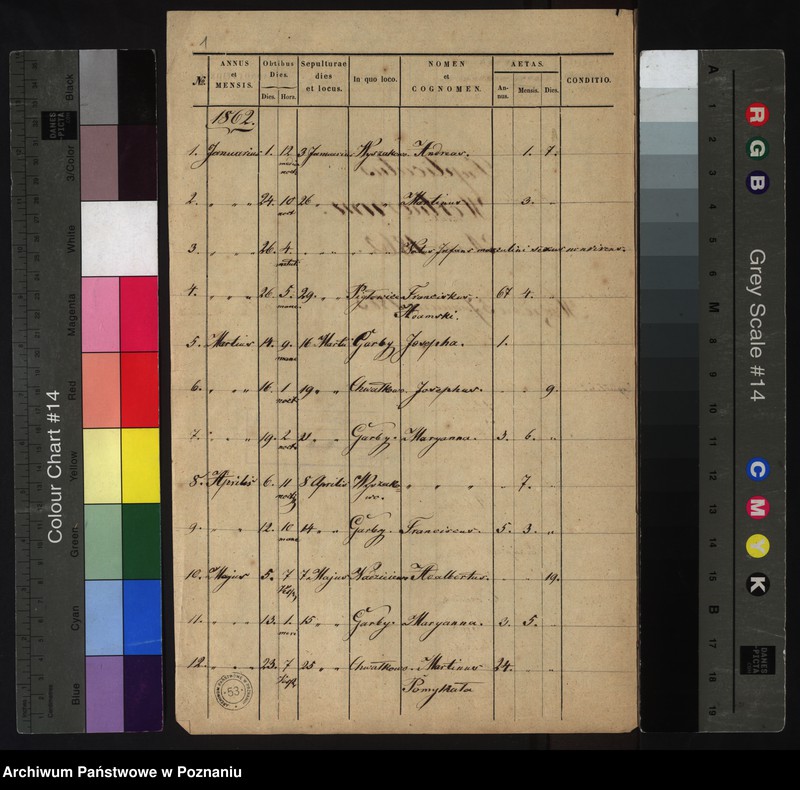 1
No.
ANNUS et MENSIS.
Obitbus Dies.
Dies. Hora.
Sepulturae dies et locus.
In quo loco.
NOMEN et COGNOMEN.
AETAS.
Annus. Mensis. Dies.
CONDITIO.
1862.
1. Januarius 1. 12 3 Januarius Wyszakowo Andreas. 1. 7.
2. " " " 24. 10 26 " " Martinus 3. "
3. " " " 26. 4 " " " " masculini sexus
4. " " " 26. 5. 29. " " Franciskus 67 4.
Adamski.
5. Martius 14. 9. 16 Martii Garby Josepha. 1.
6. " " " 16. 1 19 " " Chwałkowo Josephus. " " 9.
7. " " " 19. 2 21 " " Garby. Maryanna. 3. 6. "
8. Aprilis 6. 11 8 Aprilis Wyszakowo. " " " " 7. "
9. " " 12. 10 14 " " Garby. Franciscus. 5. 3. "
10. Majus 5. 7 7. Majus Adalbertus. " " 19.
11. " " " 13. 1. 15 " " Garby. Maryanna. 3. 5. "
12. " " " 23. 7 25 " " Chwałkowo. Martinus 24. " "
Pomykała
53
Colour Chart #14
Black
3/Color
White
Magenta
Red
Yellow
Green
Cyan
Blue
Centimetres
DANES PICTA
Grey Scale #14
R
G
B
C
M
Y
K
A
1
2
3
4
5
6
M
8
9
10
11
12
13
14
15
B
17
18
19
DANES PICTA
Archiwum Państwowe w Poznaniu